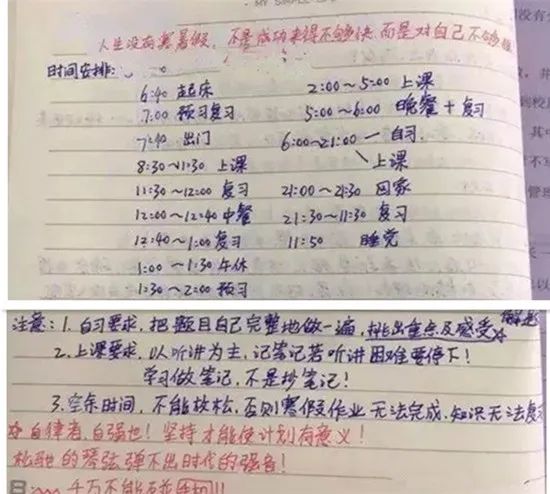 MY SIMPLE
人生没有寒暑假，不是成功来得不够快，而是对自己不够狠
时间安排：
6:40 起床
7:00 预习复习
7:40 出门
8:30~11:30 上课
11:30~12:00 复习
12:00~12:40 中餐
12:40~1:00 复习
1:00~1:30 午休
1:30~2:00 预习
2:00~5:00 上课
5:00~6:00 晚餐+复习
6:00~21:00 自习
上课
21:00~21:30 回家
21:30~11:30 复习
11:50 睡觉
注意：1. 自习要求，把题目自己完整地做一遍，挑出重点及感受
2. 上课要求，以听讲为主，记笔记若听讲困难要停下！
学习做笔记，不是抄笔记！
3. 空余时间，不能放松，否则寒假作业无法完成，知识无法复
☆自律者，自强也！坚持才能使计划有意义！
松驰的琴弦弹不出时代的强音！
千万不能玩手机!!!